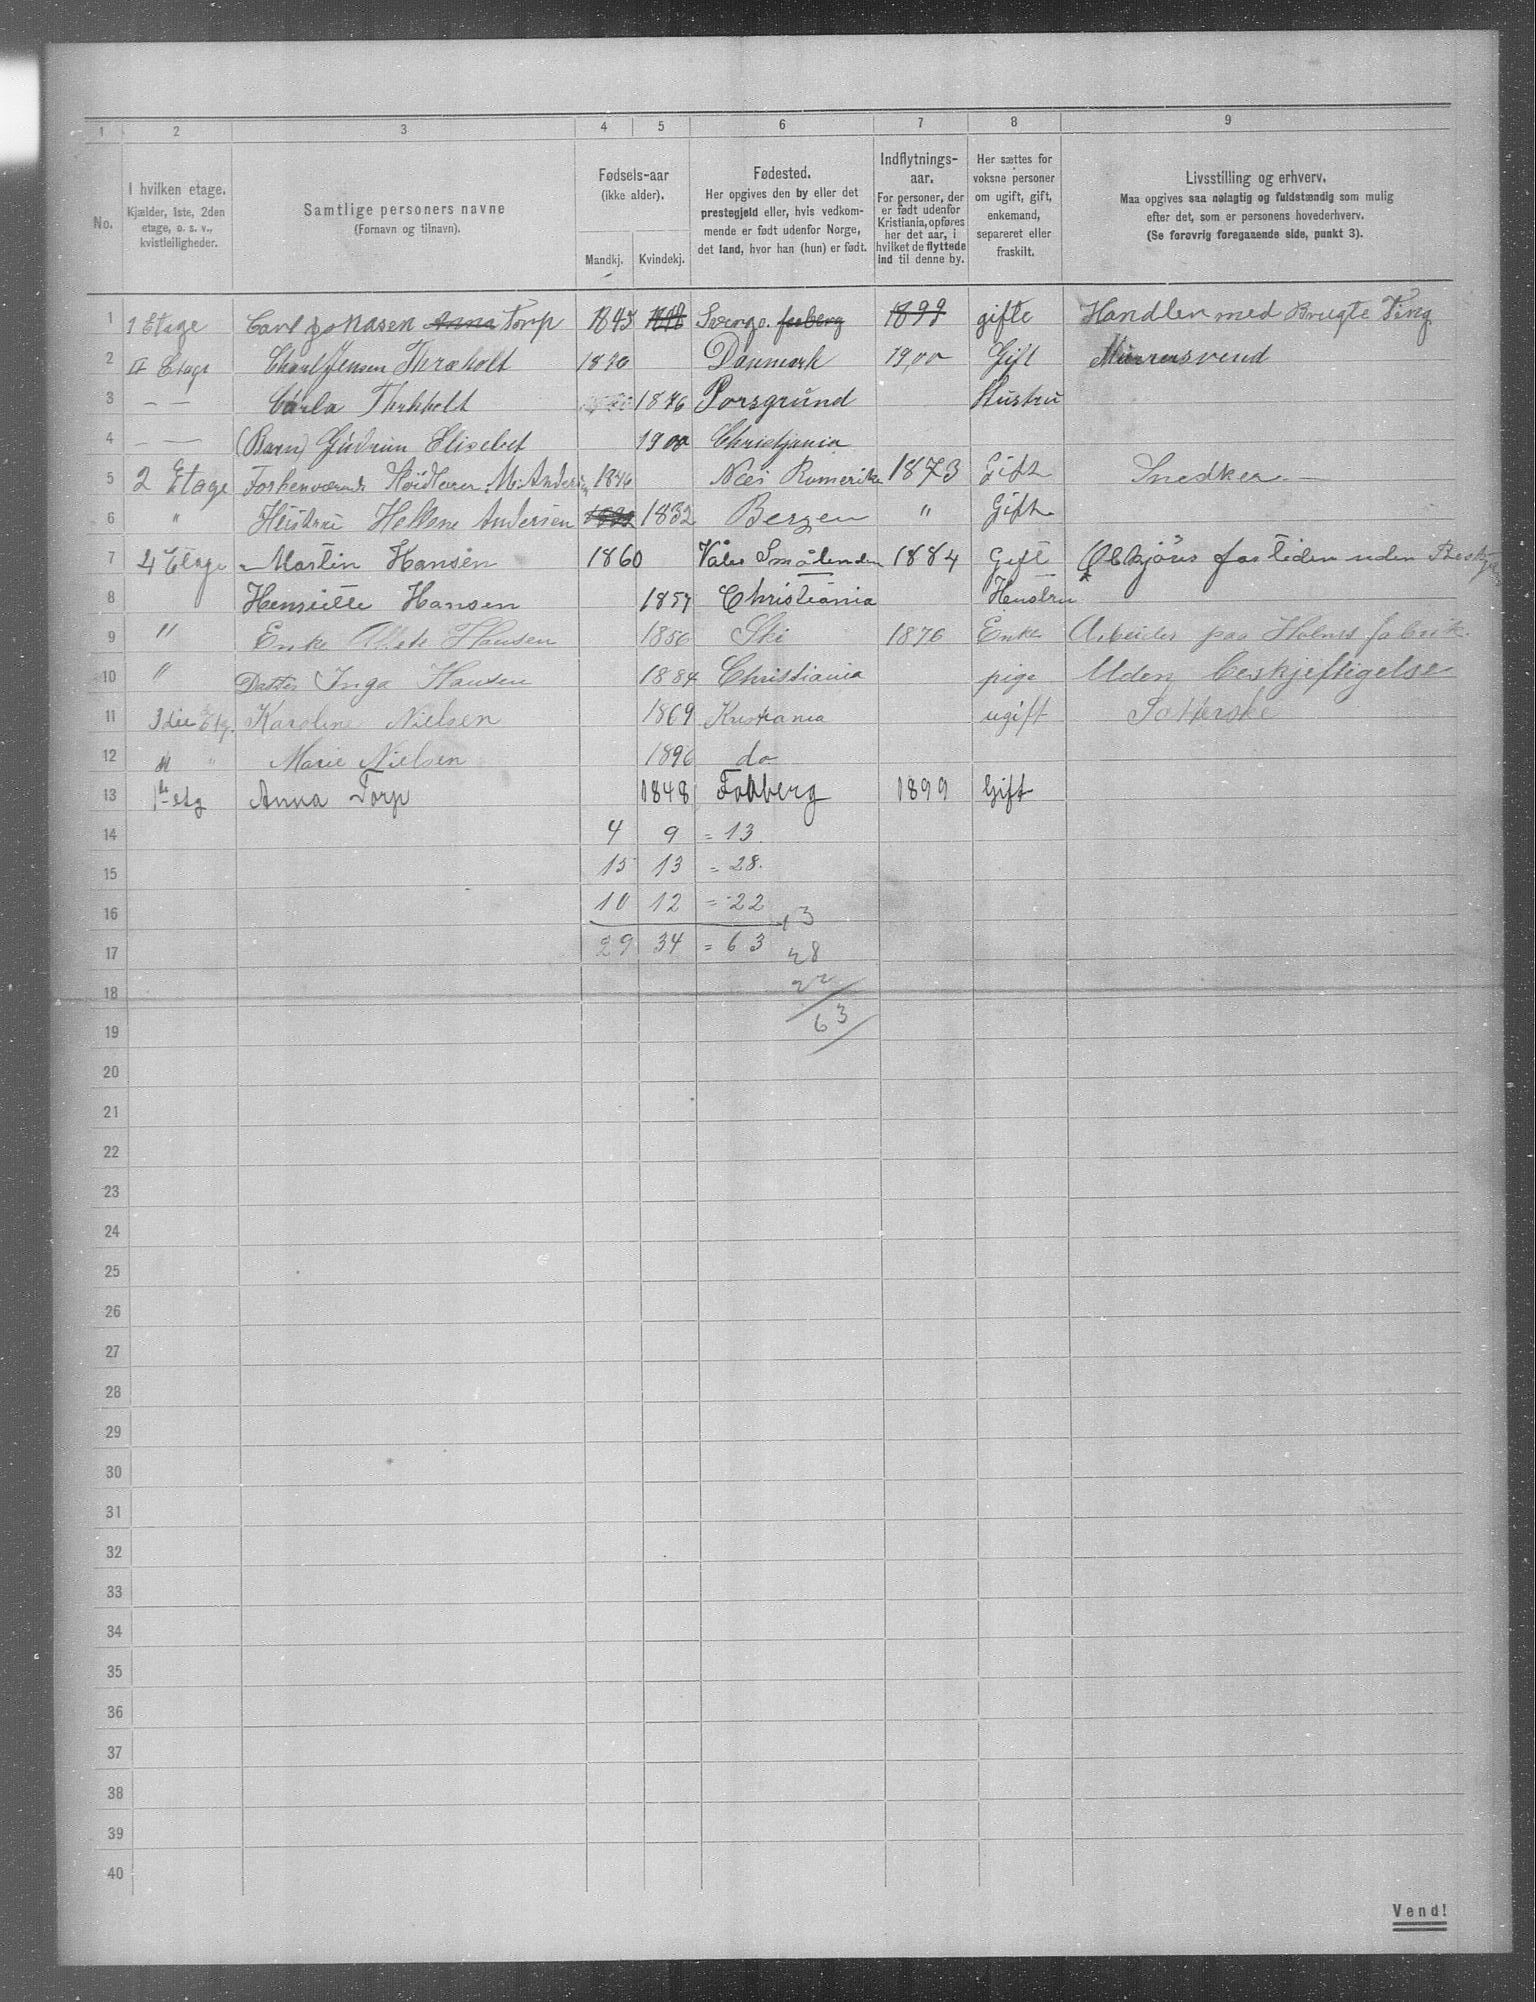 1 2 3 4 5 6 7 8 9
No.
I hvilken etage.
Kjælder, 1ste, 2den
etage, o. s. v.,
kvistleiligheder.
Samtlige personers navne
(Fornavn og tilnavn).
Fødsels-aar
(ikke alder).
Mandkj. Kvindekj.
Fødested.
Her opgives den by eller det
prestegjeld eller, hvis vedkom-
mende er født udenfor Norge,
det land, hvor han (hun) er født.
Indflytnings-
aar.
For personer, der
er født udenfor
Kristiania, opføres
her det aar, i
hvilket de flyttede
ind til denne by.
Her sættes for
voksne personer
om ugift, gift,
enkemand,
separeret eller
fraskilt.
Livsstilling og erhverv.
Maa opgives saa nøiagtig og fuldstændig som mulig
efter det, som er personens hovederhverv.
(Se forøvrig foregaaende side, punkt 3).
1 1 Etage Carl Jonasen Anna Torp 1845 1848 Sverge. 1899 gifte Handler med Brugte Ting
2 II Etage Jensen Thraholt 1870 Danmark 1900 Gift Murersvend
3 — — Carla Thrhholt 1876 Porsgrund Hustru
4 — — (Barn) Gudrun Elisebet 1900 Christjania
5 2 Etage M. Andersen 1846 Nes Romerike 1873 Gift Snedker —
6 " Hustru Hellene Andersen 1832 Bergen " Gift
7 4 Etage Martin Hansen 1860 Våler Smålenden 1884 Gift Ølkjører for tiden uden Beskj
8 Henriette Hansen 1857 Christiania Heustru
9 " Enke Hansen 1856 Ski 1876 Enke Arbeider paa Holmes fabrik.
10 " Datter Inga Hansen 1884 Christiania pige Uden beskjeftigelse
11 3die Etg. Karoline Nielsen 1869 Kristiania ugift
12 " Marie Nielsen 1896 do
13 1ste etg Anna Torp 1848 Faaberg 1899 Gift
14 4 9 = 13.
15 15 13 = 28.
16 10 12 = 22
13
17 29 34 = 63
28
18 22
19 63
20
21
22
23
24
25
26
27
28
29
30
31
32
33
34
35
36
37
38
39
40
Vend!